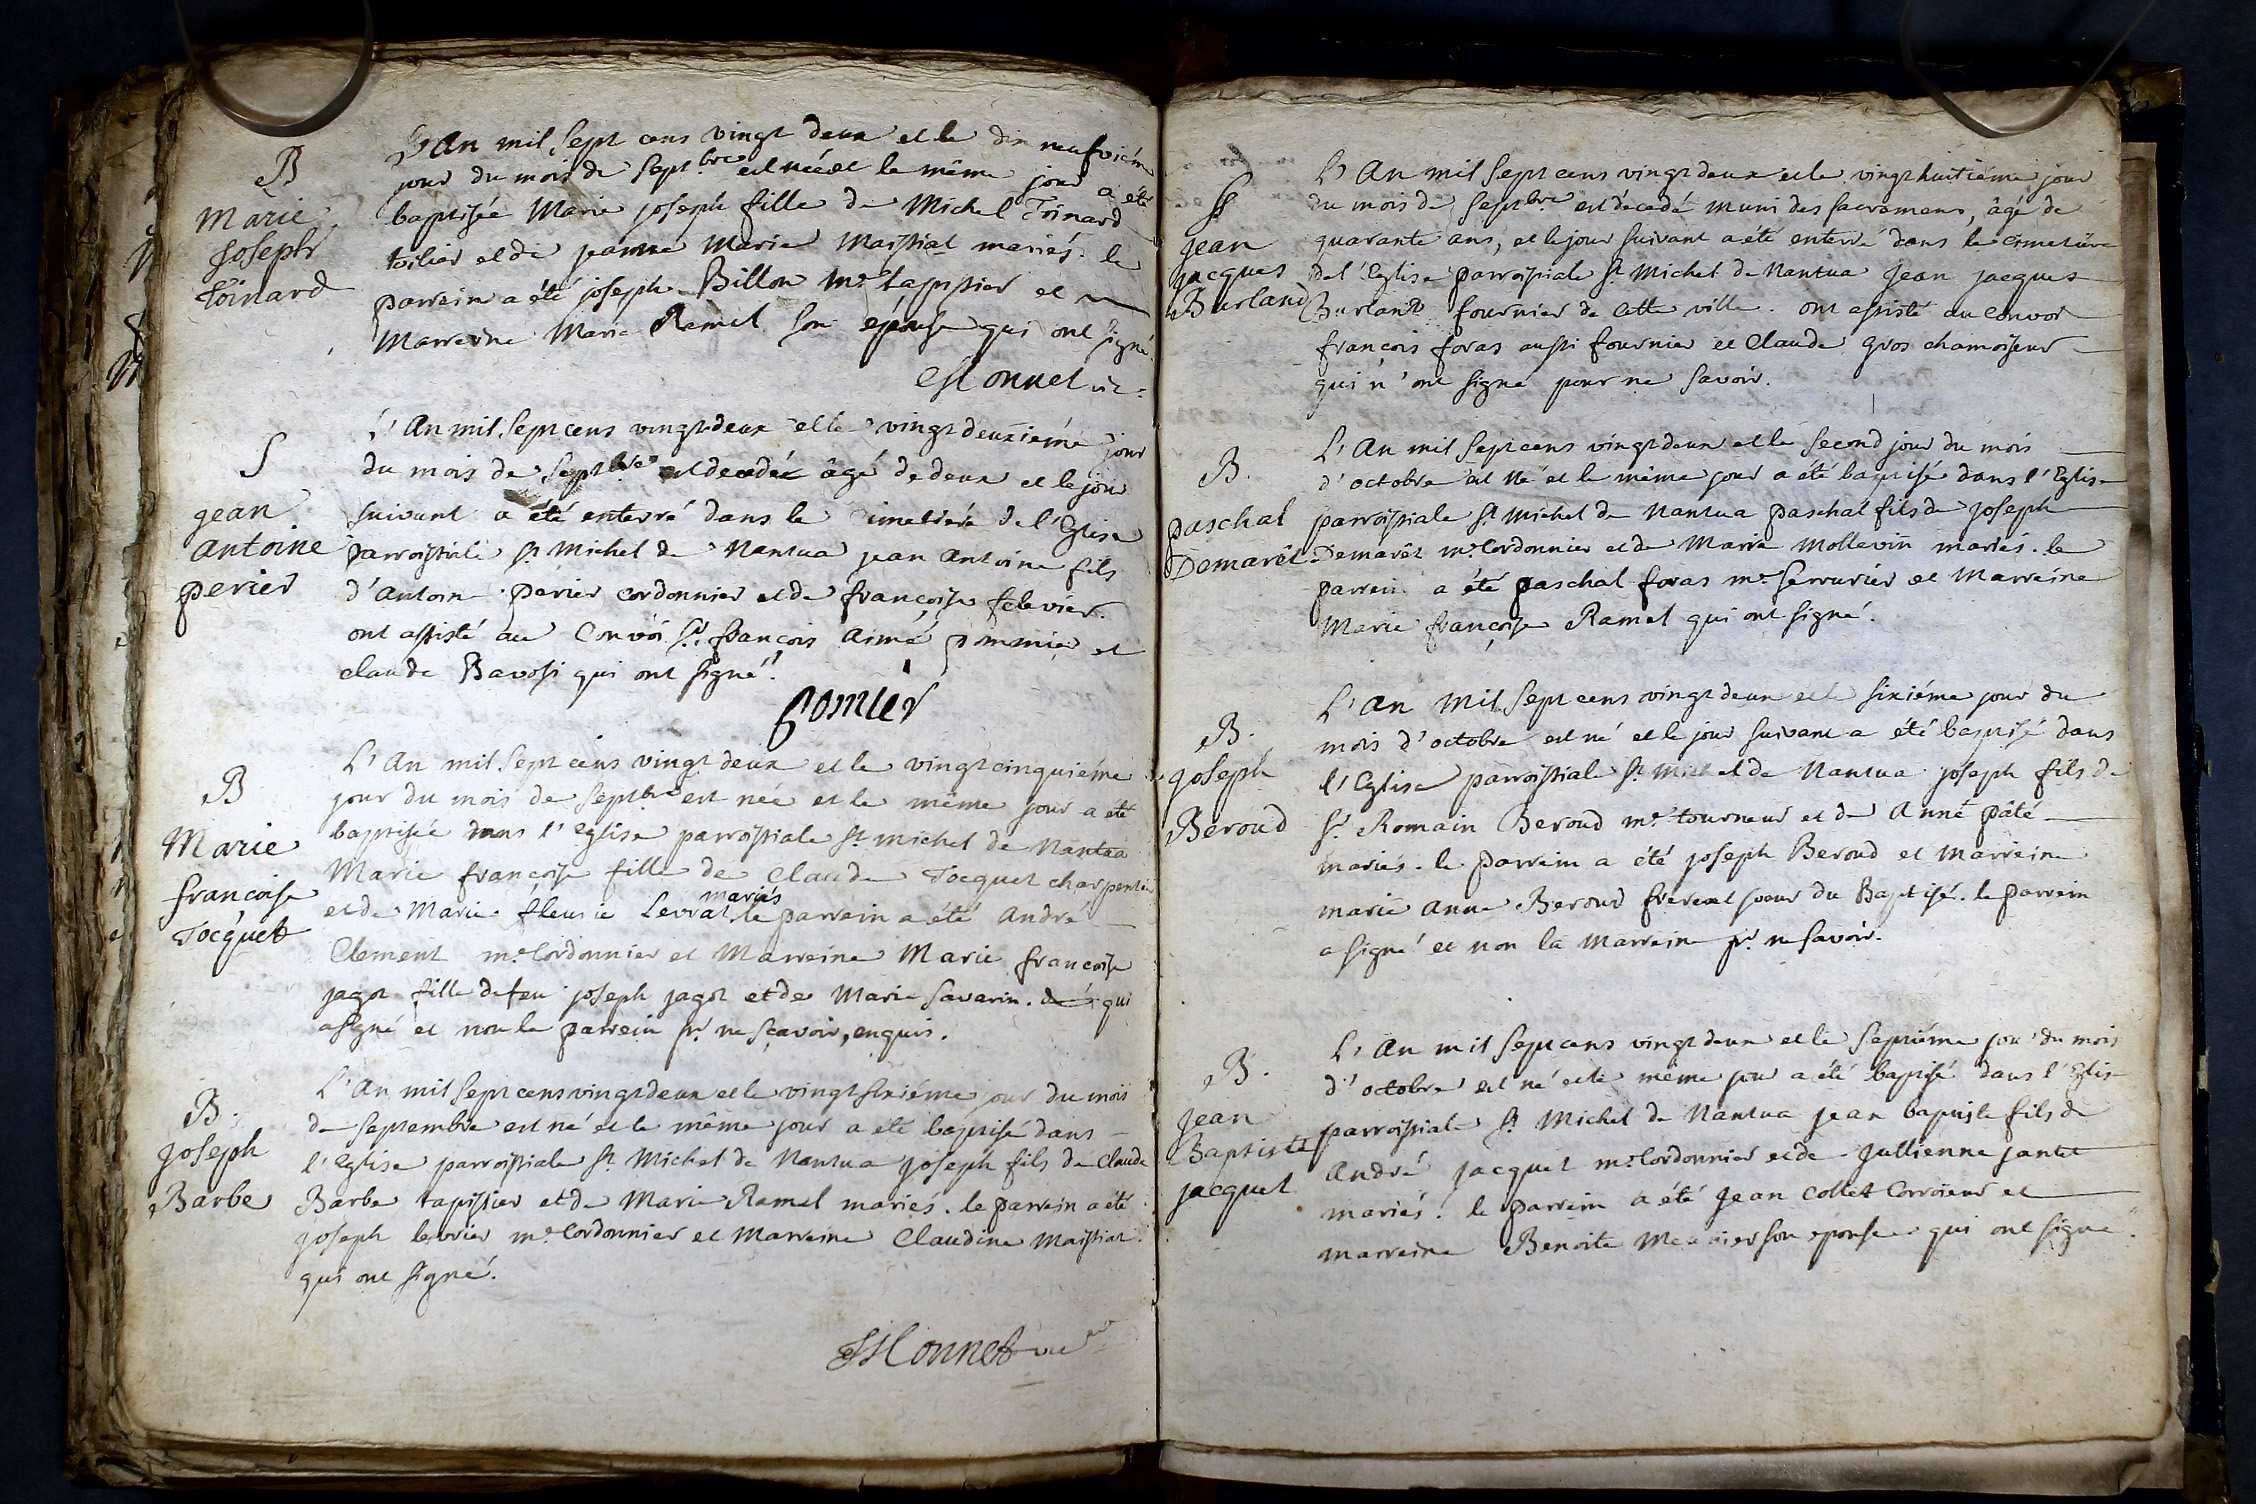 B
Marie
Joseph
Toinard
L'An mil sept cens vingt deux et le dix neufvième
jour du mois de Sept.bre est née et le même jour a été
baptisée Marie joseph fille de Michel Toinard
toilier et de jeanne Marie Maissiat mariés. le
parrein a été joseph Billon m.e tapissier et
Marreine Marie Ramel son épouse qui ont signé.
Monnet vic.
S
jean
antoine
perier
L'An mil sept cens vingt deux et le vingt deuxième jour
du mois de Septbre est decedé âgé de deux et le jour
suivant a été enterré dans le cimetière de l'Eglise
parroissiale St. Michel de Nantua jean antoine fils
d'Antoine perier cordonnier et de françoise
ont assisté au Convoi Sr. françois Aimé pommier et
claude Bavosi qui ont signé.
Comier
B
Marie
françoise
Tocquet
L'An mil sept cens vingt deux et le vingt cinquième
jour du mois de Septbre est née et le même jour a été
baptisée dans l'Eglise parroissiale St. michel de Nantua
Marie françoise fille de Claude Tocquet charpentier
mariés
et de Marie fleurie Levrat, le parrein a été André
Clement m.e Cordonnier et Marreine Marie françoise
jagot fille de feu joseph jagot et de Marie Savarin. qui
a signé et non le parrein pr. ne sçavoir, enquis.
B.
joseph
Barbe
L'An mil sept cens vingt deux et le vingt sixième jour du mois
de septembre est né et le même jour a été baptisé dans
l'Eglise parroissiale St. Michel de Nantua joseph fils de Claude
Barbe tapissier et de Marie Ramel mariés. le parrein a été
joseph levrier m.e Cordonnier et Marreine Claudine Maissiat
qui ont signé.
Monnet vic
S
jean
jacques
Burland
L'An mil sept cens vingt deux et le vingt huitième jour
du mois de septbre est décedé muni des sacremens, âgé de
quarante ans, et le jour suivant a été enterré dans le cimetière
de l'Eglise parroissiale St. Michel de Nantua Jean jacques
Burland fournier de cette ville. ont assisté au Convoi
françois foras aussi fournier et Claude gros chamoiseur
qui n'ont signé pour ne savoir.
B.
paschal
Demarêt
L'An mil sept cens vingt deux et le second jour du mois
d'octobre est né et le même jour a été baptisé dans l'Eglise
parroissiale St. Michel de Nantua paschal fils de joseph
Demarêt m.e Cordonnier et de Marie Mollevin mariés. le
parrein a été paschal foras m.e serrurier et Marreine
Marie françoise Ramel qui ont signé.
B.
joseph
Beroud
L'An mil sept cens vingt deux et le sixième jour du
mois d'octobre est né et le jour suivant a été baptisé dans
l'Eglise parroissiale St. Michel de Nantua joseph fils de
Sr. Romain Beroud m.e tourneur et de Anne pâté
mariés. le parrein a été joseph Beroud et Marreine
marie Anne Beroud frere et soeur du Baptisé. le parrein
a signé et non la Marreine pr. ne savoir.
B.
jean
Baptiste
jacquet
L'An mil sept cens vingt deux et le septième jour du mois
d'octobre est né et le même jour a été baptisé dans l'Eglise
parroissiale St. Michel de Nantua jean baptiste fils de
André jacquet m.e Cordonnier et de Jullienne jantet
mariés. le parrein a été Jean Collet Corroieur et
marreine Benoite son epouse qui ont signé.